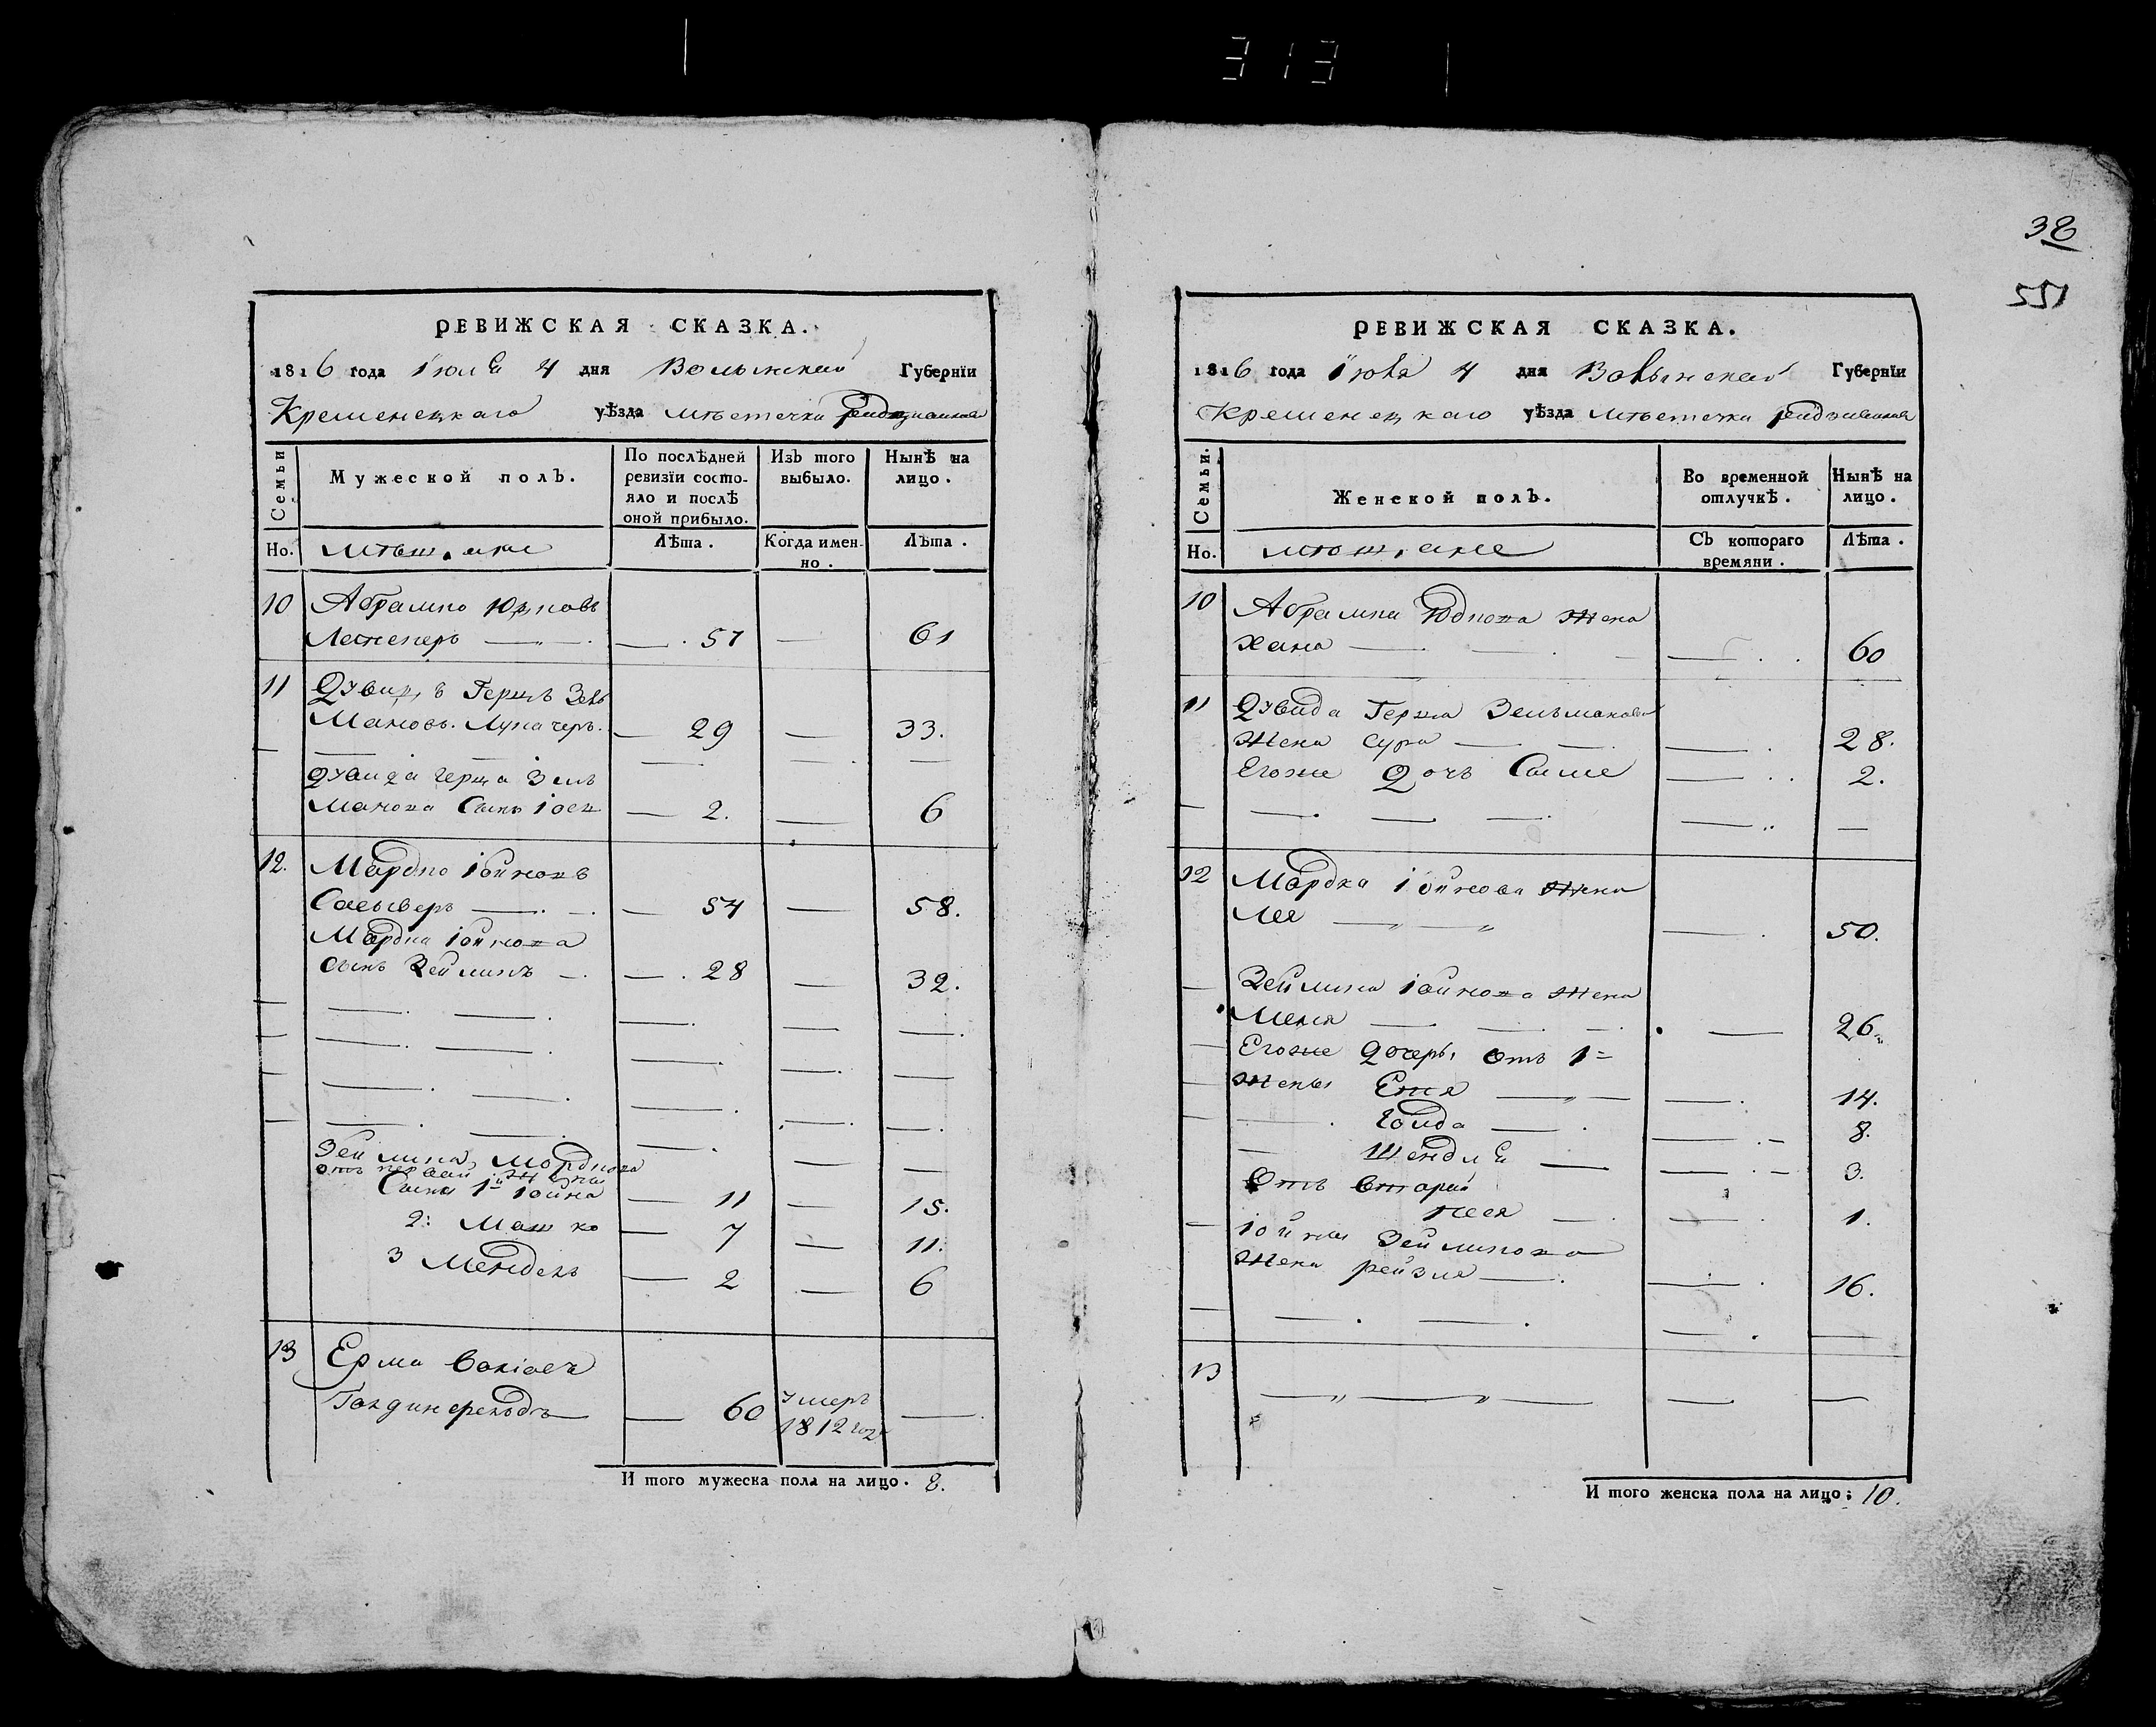 313
38
551
РЕВИЖСКАЯ СКАЗКА.
1816 года Iюля 4 дня Волынской Губернїи
Кременецкаго уѣзда мѣстечка
Семьи
Мужеской полъ.
По послѣдней ревизїи состо-
яло и послѣ
оной прибыло.
Изъ того
выбыло.
Нынѣ на
лицо.
Но.
Лѣта.
Когда имен-
но.
Лѣта.
10 Абрамко
— 57 — 61
11 Дувидъ Герцъ Зель
мановъ. — 29 — 33.
Дувида Герца Зель
манова Сынъ Iось — 2. — 6
12. Мордко Iойновъ
— 54 — 58.
Мордка Iойнова
сынъ Зейликъ — 28 — 32.
Зейлика Мордкова
отъ первой жены
Сынъ 1й Iойна — 11 — 15.
2: Мошко — 7 — 11.
3 Мендель — 2 — 6
13 Ерма
— 60 умеръ —
1812 год
И того мужеска пола на лицо. 8.
РЕВИЖСКАЯ СКАЗКА.
1816 года Iюля 4 дня Волынской Губернїи
Кременецкаго уѣзда мѣстечка
Семьи.
Женской полъ.
Во временной
отлучкѣ.
Нынѣ на
лицо.
Но.
Съ котораго
времяни.
Лѣта.
10 Абрамка жена
Хана — 60
11 Дувида Герца Зельманова
жена Сура — 28.
Егоже Дочь — 2.
12 Мордка Iойнова жена
Лея — 50.
Зейлика Iойнова жена
— 26
Егоже дочерь отъ 1=
жены — 14.
Голда — 8.
Шендля — 3.
Отъ второй
— 1.
Iойны Зейликова
жена рейзля — 16.
13
И того женска пола на лицо; 10.